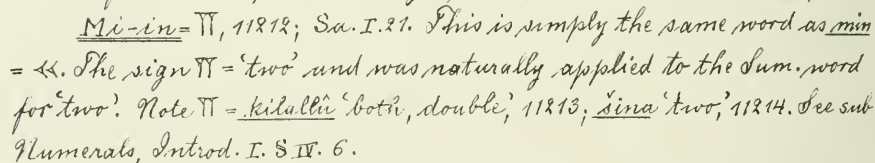 Mi-in = 𒈫, 11212; Sa. I. 21. This is simply the same word as min
= 𒎙. The sign 𒈫 = 'two' and was naturally applied to the Sum. word
for 'two'. Note 𒈫 = kilallû 'both, double', 11213; šina 'two,' 11214. See sub
Numerals, Introd. I. § IV. 6.